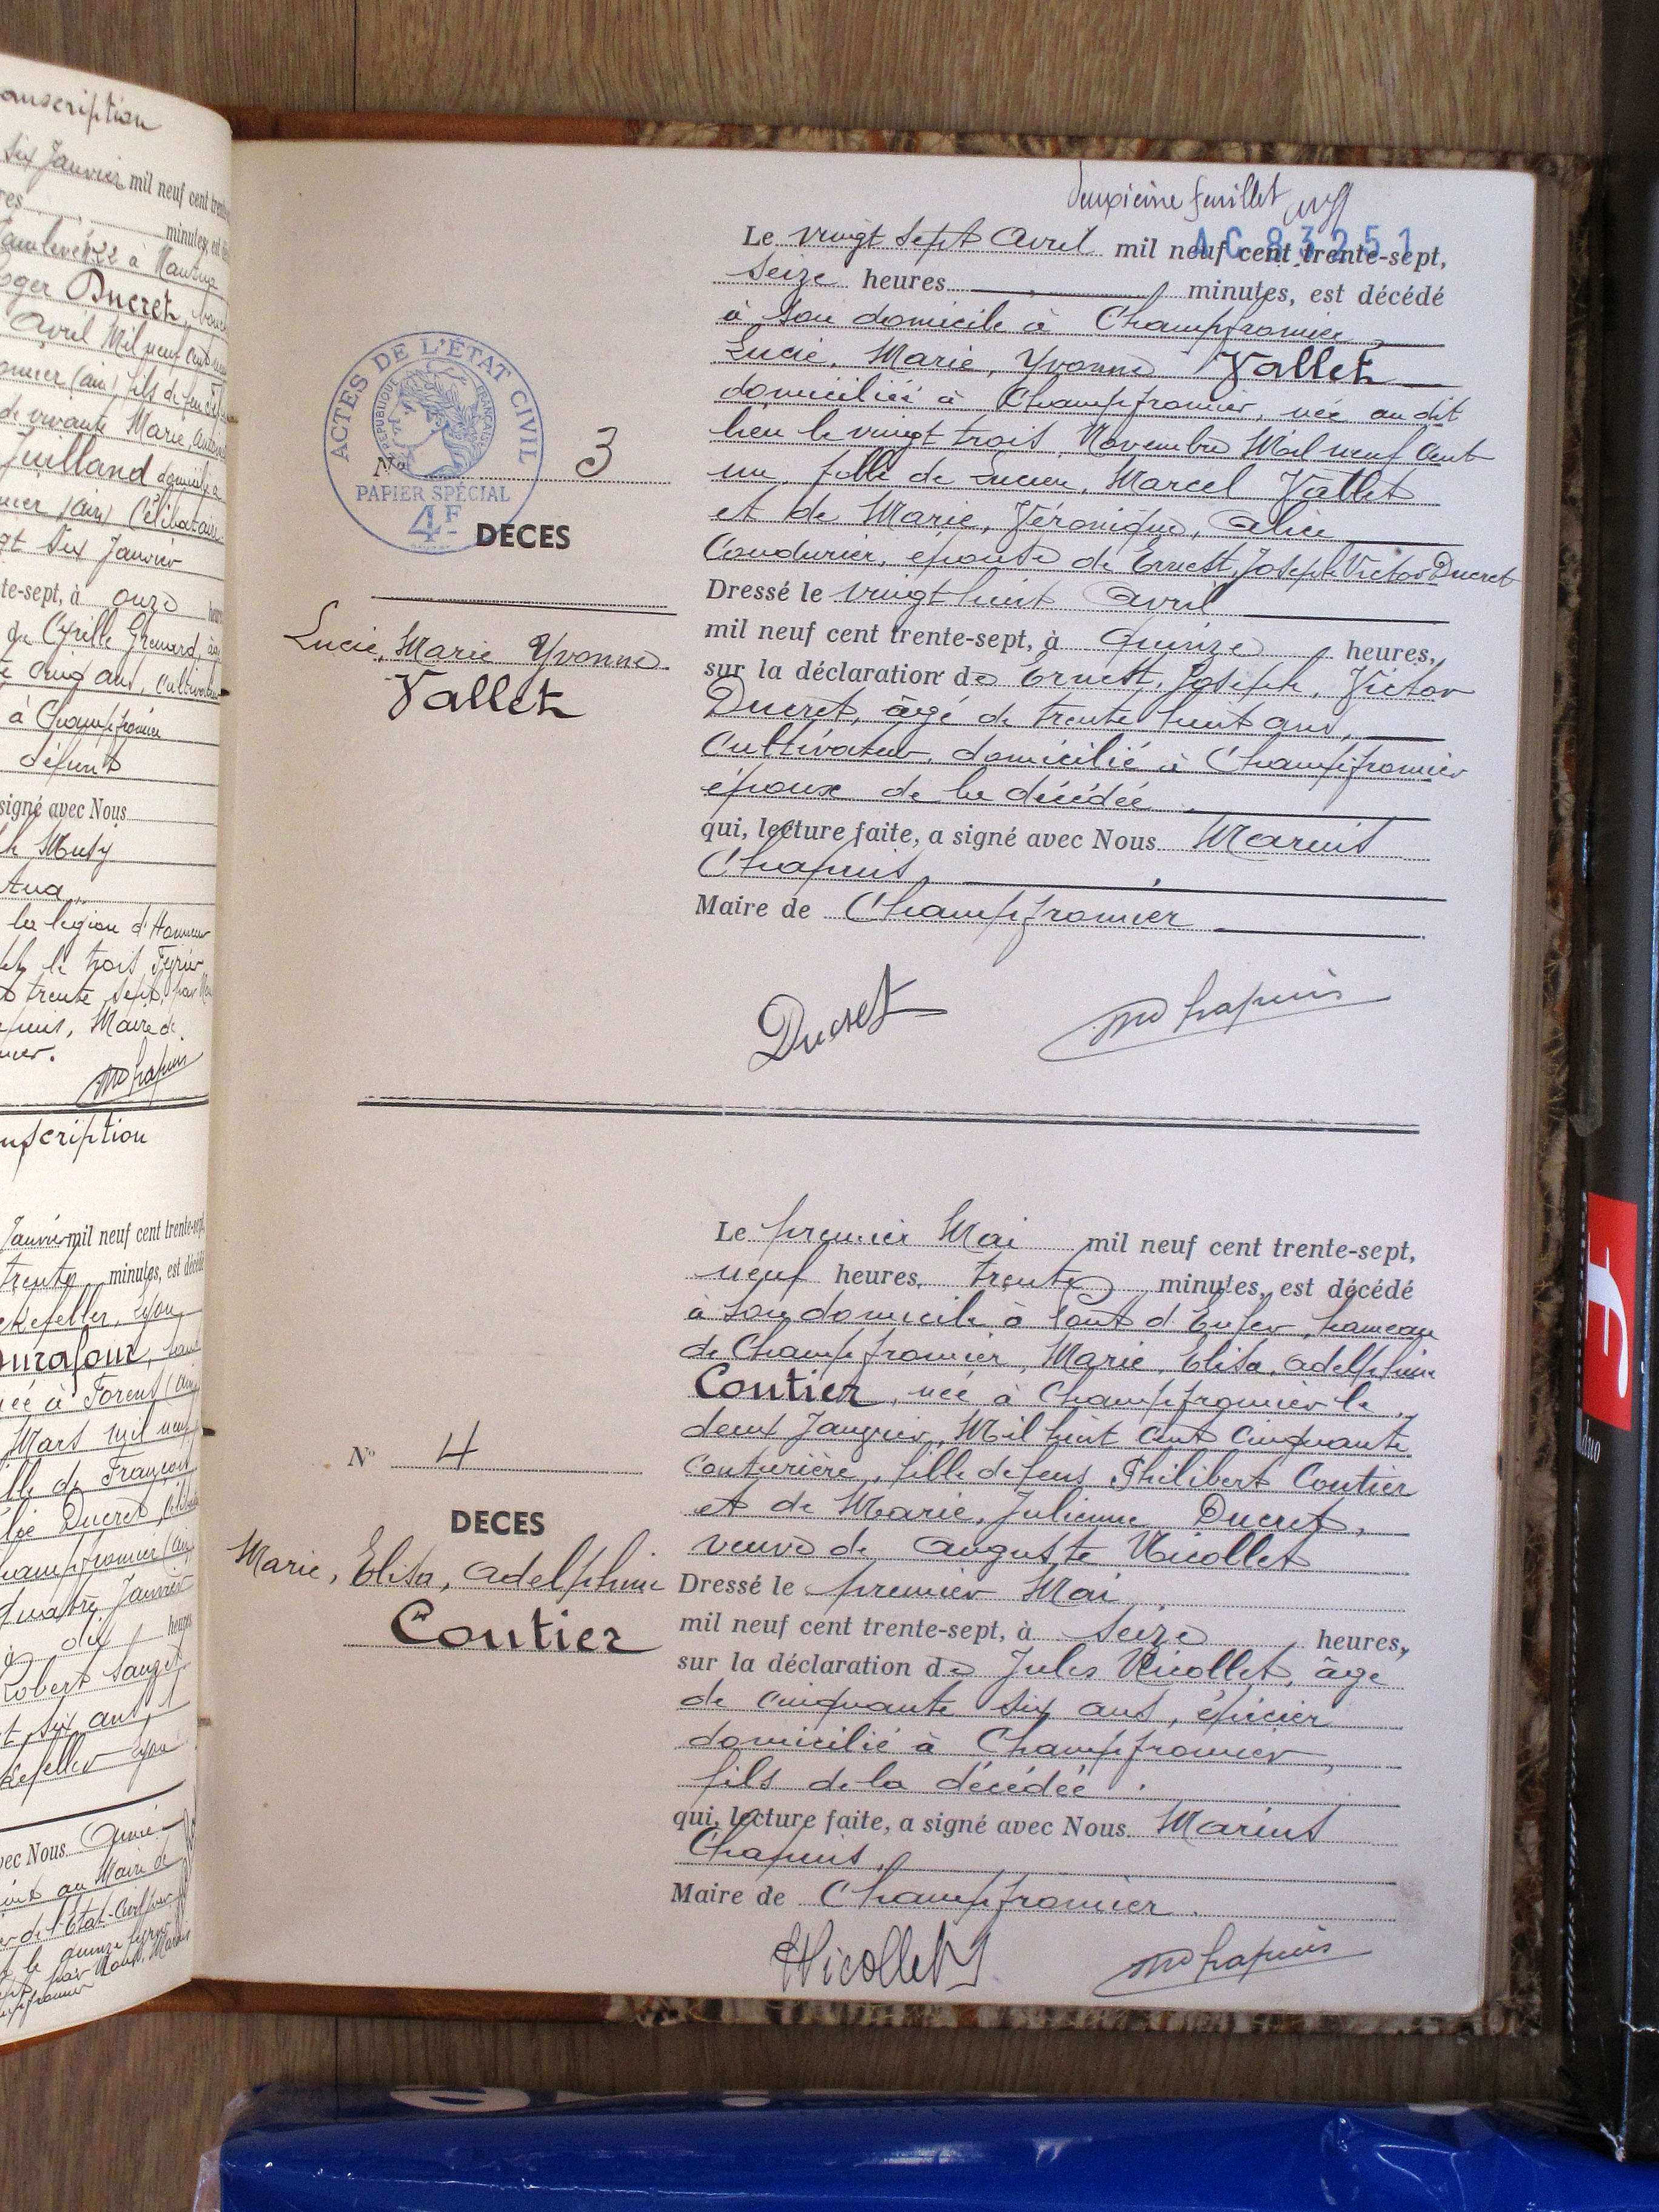 anscription
six Janvier mil neuf cent trente
res minutes, est
à Nantua
oger Ducret,
Avril Mil neuf cent
fils de feu
de vivante Marie,
Juilland domicilié à
Célibataire
gt six Janvier
te-sept, à onze heures
de Cyrille Grenard,
cinq ans, cultivateur
à Champfromier
défunt
signé avec Nous
la légion d'Honneur
le trois Février
trente sept, par
Maire de
mier.
nscription
Janvier mil neuf cent trente-sept,
trente minutes, est décédé
Lyon
née à Forens (Ain)
Mars mil neuf
lle de François
Ducret
Champfromier (Ain)
quatre Janvier
à dix heures
Robert
t six ans,
Lyon
vec Nous
au Maire de
er de l'Etat-Civil
le quinze
Deuxième feuillet
AC 83251
Le vingt sept Avril mil neuf cent trente-sept,
seize heures minutes, est décédé
à son domicile à Champfromier,
Lucie, Marie, Yvonne Vallet
domiciliée à Champfromier, née au dit
lieu le vingt trois Novembre Mil neuf cent
un, fille de Lucien, Marcel Vallet
et de Marie, Véronique, Alice
Coudurier, épouse de Ernest, Joseph Victor Ducret
Dressé le vingt huit Avril
mil neuf cent trente-sept, à quinze heures,
sur la déclaration de Ernest, Joseph, Victor
Ducret, âgé de trente huit ans,
Cultivateur, domicilié à Champfromier
époux de la décédée
qui, lecture faite, a signé avec Nous Marius
Chapuis,
Maire de Champfromier
Ducret
M Chapuis
ACTES DE L'ÉTAT CIVIL
RÉPUBLIQUE FRANÇAISE
PAPIER SPÉCIAL
4F
No 3
DECES
Lucie, Marie Yvonne
Vallet
Le premier Mai mil neuf cent trente-sept,
neuf heures, trente minutes, est décédé
à son domicile à Pont d'Enfer, hameau
de Champfromier, Marie, Elisa, Adelphine
Coutier, née à Champfromier le
deux Janvier, Mil huit cent cinquante
couturière, fille de feus Philibert Coutier
et de Marie, Julienne Ducret,
veuve de Auguste Nicollet
Dressé le premier Mai
mil neuf cent trente-sept, à seize heures,
sur la déclaration de Jules Nicollet, âgé
de cinquante six ans, épicier
domicilié à Champfromier,
fils de la décédée.
qui, lecture faite, a signé avec Nous Marius
Chapuis,
Maire de Champfromier.
Nicollet J
M Chapuis
No 4
DECES
Marie, Elisa, Adelphine
Coutier
duo